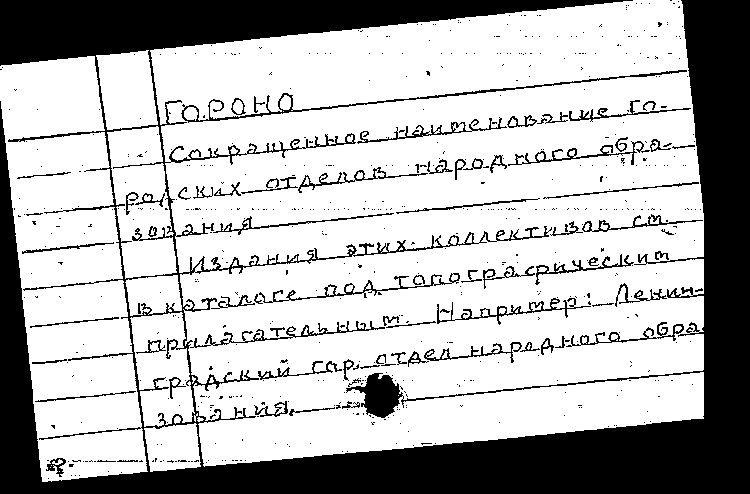 ГОРОНО
Сокращенное наименование го-
родских отделов народного обра-
зования
Издания этих коллективов см.
в каталоге под топографическим
прилагательным. Например: Ленин-
градский гор. отдел народного обра-
зования.